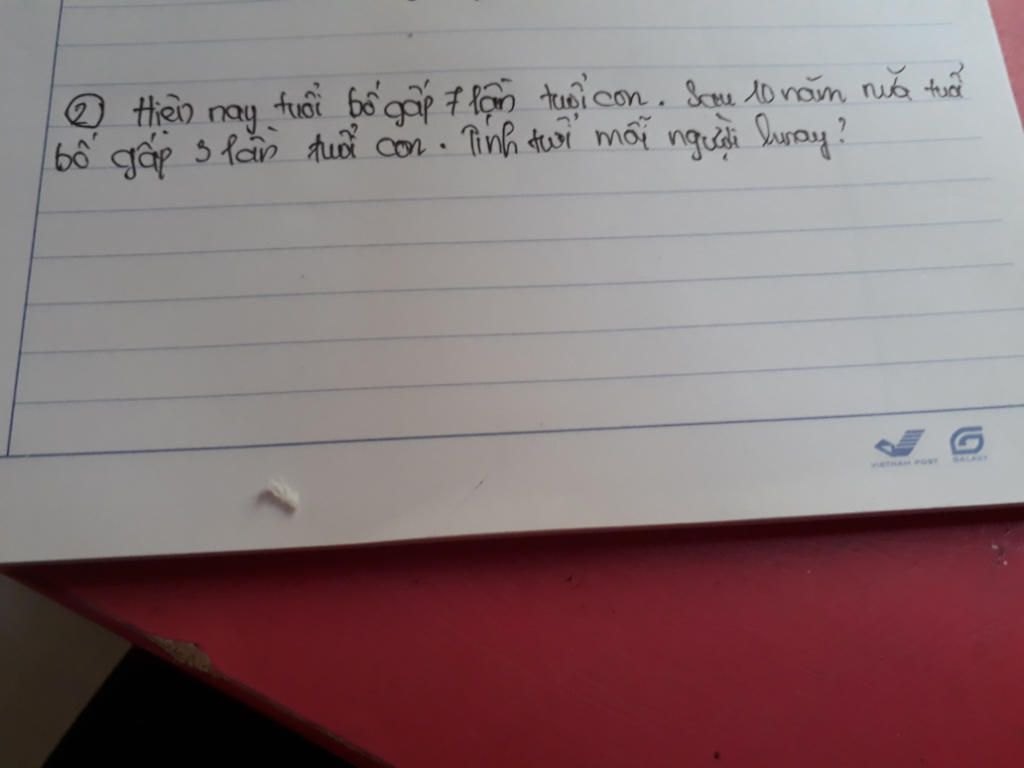 ② Hiện nay tuổi bố gấp 7 lần tuổi con. Sau 10 năm nữa tuổi
bố gấp 3 lần tuổi con. Tính tuổi mỗi người hnay?
VIETNAM POST GALAXY